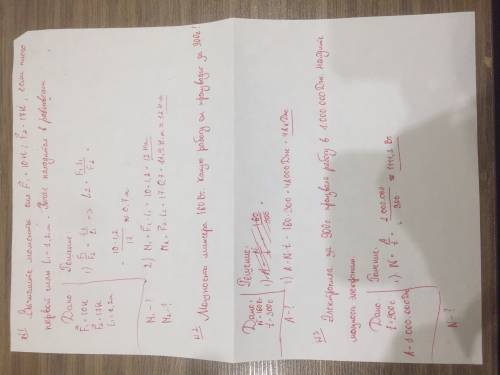 №1 Вычислите моменты сил F₁ = 10 Н ; F₂ = 17 Н , если плечо
первой силы L = 1,2 м. Рычаг находится в равновесии
Дано:
F₁ = 10 Н
F₂ = 17 Н
L₁ = 1,2 м
M₁ - ?
M₂ - ?
Решение:
1) F₁/F₂ = L₂/L₁ => L₂ = F₁L₁/F₂ =
= 10·1,2/17 ≈ 0,7 м
2) M₁ = F₁·L₁ = 10·1,2 = 12 Нм
M₂ = F₂·L₂ = 17·0,7 = 11,9 Нм ≈ 12 Нм
№2 Мощность миксера 160 Вт. Какую работу он произведет за 300с?
Дано:
N = 160 Вт
t = 300 с
A - ?
Решение:
1) A = N·t = 160·300 = 48000 Дж = 48 кДж
№3 Электропила за 900с произвела работу в 1.000.000 Дж. Найдите
мощность электропилы
Дано:
t = 900 с
A = 1.000.000 Дж
N - ?
Решение:
1) N = A/t = 1.000.000/900 ≈ 1111,1 Вт